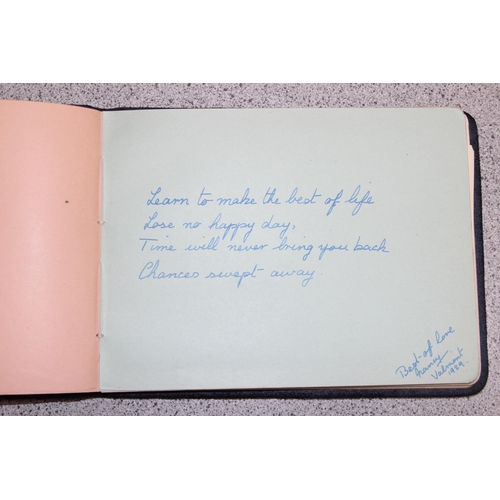 Learn to make the best of life
Lose no happy day,
Time will never bring you back
Chances swept away.
Best of love
Valmont
1929